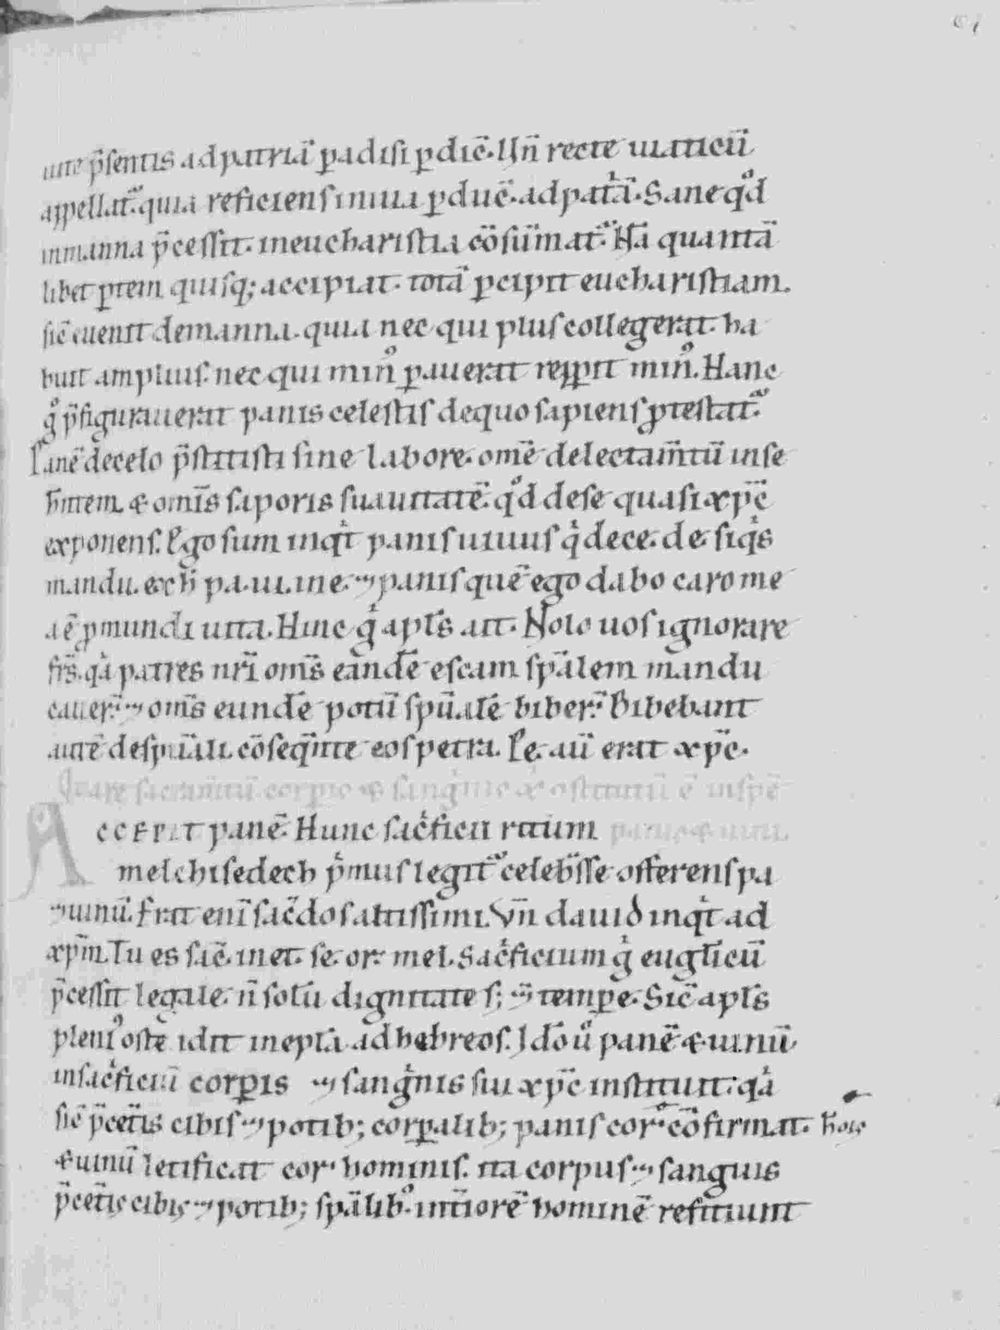 uite p̄sentis ad patriā ꝑadisi ꝑdic̄. Uñ recte uiaticū
appellat᷑. quia reficiens in uia ꝑduc̄ ad pat̄ā. Sane qd̊
in manna p̄cessit. in eucharistia cōsūmat᷑. Nā quantā
libet ꝑtem quisq; accipiat. totā ꝑcipit eucharistiam.
sic̄ euenit de manna. quia nec qui plus collegerat. ha
buit amplius. nec qui min᷒ ꝑauerat repꝑit min᷒. Hanc
g̊ p̄figurauerat panis celestis de quo sapiens ꝓtestat᷑.
Panē de celo p̄stitisti sine labore. omē delectam̄tū in se
h̄ntem. & om̄is saporis suauitatē. qd̊ de se quasi xp̄c
exponens. Ego sum inqͥt panis uiuus qͥ de ce. de. siqͥs
mandu. ex h̄ pa. ui. ine. ⁊ panis quē ego dabo caro me
a ē ꝓ mundi uita. Hinc g̊ apls̄ ait. Nolo uos ignorare
frs̄. qͣ patres nrī om̄s eandē escam sp̄alem mandu
cauer̄. ⁊ om̄s eundē potū spūalē biber̄. Bibebant
autē de spūali. cōseq̄nte eos petra. Pe. aū erat xp̄c.
Quare sacram̄tū corꝑis & sangͥnis xp̄i ostitutū ē in spē
Accepit panē. Hunc sacͥficii ritum panis & uini.
melchisedech pͥmus legit᷑ celeb̄sse offerens pa
⁊ uinū. Erat enī sac̄dos altissimi. Vñ dauid inqͥt ad
xp̄m. Tu es sac̄. in et. se. or. mel. Sacͥficium g̊ euglīcū
p̄cessit legale. ñ solū dignitate s; ⁊ tempe. Sic̄ apls̄
pleni᷒ oste idit in epl̄a ad hebreos. Ido ů panē & uinū
in sacͥficiū corꝑis ⁊ sangͥnis sui xp̄c instituit. qͣ
sic̄ p̄cet̄is cibis ⁊ potib; corꝑalib; panis cor cōfirmat. hōis
& uinū letificat cor hominis. ita corpus ⁊ sanguis
p̄cet̄is cibis ⁊ potib; sp̄alib᷒ int̄iorē hominē reficiunt